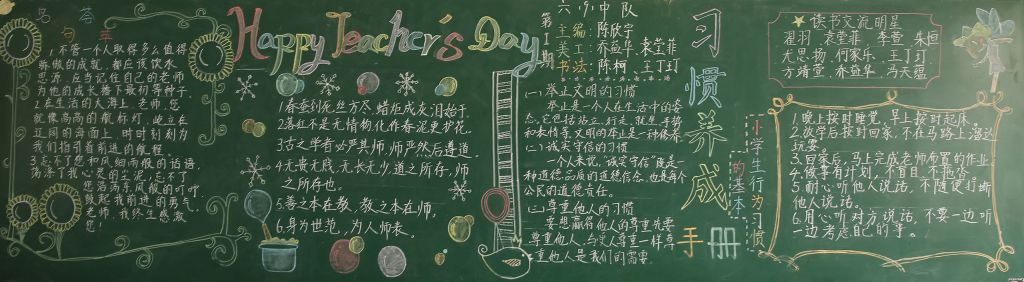 名荟
句萃
1.不管一个人取得多么值得
骄傲的成就,都应该饮水
思源,应当记住自己的老师
为他的成长播下最初等种子
2.在生活的大海上,老师,您
就像高高的航标灯,屹立在
辽阔的海面上,时时刻刻为
我们指引着前进的航程
3.忘不了您和风细雨般的话语,
荡涤了我心灵的尘泥,忘不了
您浩荡东风般的叮咛
鼓起我前进的勇气
老师,我终生感激
您!
Happy Teacher's Day
1.春蚕到死丝方尽,蜡炬成灰泪始干
2.落红不是无情物,化作春泥更护花。
3.古之学者必严其师,师严然后尊道
4.无贵无贱,无长无少,道之所存,师
之所存也。
5.善之本在教,教之本在师。
6.身为世范,为人师表。
六(9)中队
第1期
主编:陈欣宁
美工:乔益华 袁莹菲
书法:陈柯 王丁玎
(一)举止文明的习惯
举止是一个人在生活中的姿
态,它包括站立、行走、就坐、手势
和表情等,文明的举止是一种修养
(二)诚实守信的习惯
一个人来说,"诚实守信"既是一
种道德品质的道德信念,也是每个
公民的道德责任。
(三)尊重他人的习惯
要想赢得他人的尊重先要
尊重他人,与人尊重一样尊
重他人是我们的需要
习惯养成
手册
小学生行为习惯
的基本
读书交流明星
翟羽 袁莹菲 李萱 朱恒
尤思扬 何家乐 王丁玎
方靖萱 乔益华 冯天缊
1.晚上按时睡觉,早上按时起床。
2.放学后按时回家,不在马路上溜达
玩耍。
3.回家后,马上完成老师布置的作业
4.做事有计划,不盲目,不拖沓
5.耐心听他人说话,不随便打断
他人说话。
6.用心听对方说话,不要一边听
一边考虑自己的事。